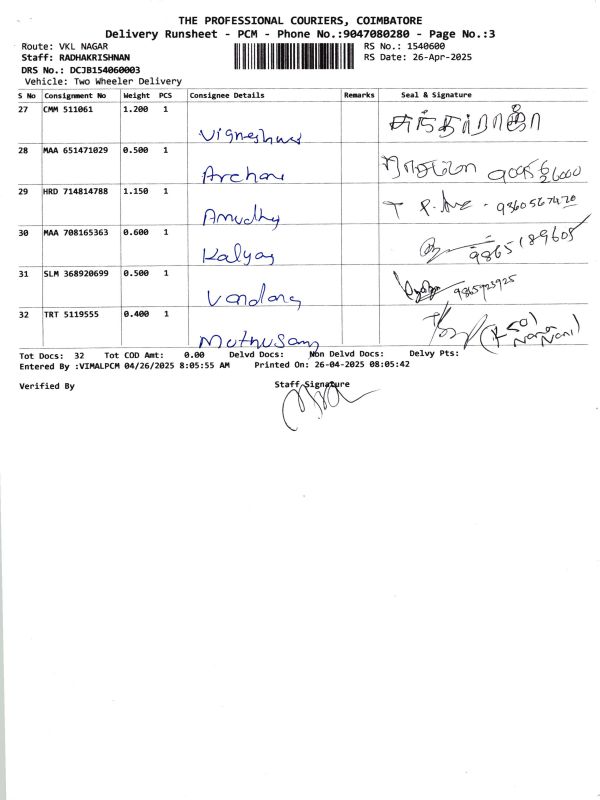 THE PROFESSIONAL COURIERS, COIMBATORE
Delivery Runsheet - PCM - Phone No.:9047080280 - Page No.:3
Route: VKL NAGAR RS No.: 1540600
Staff: RADHAKRISHNAN RS Date: 26-Apr-2025
DRS No.: DCJB154060003
Vehicle: Two Wheeler Delivery
S No Consignment No Weight PCS Consignee Details Remarks Seal & Signature
27 CMM 511061 1.200 1
Vigneshwar
28 MAA 651471029 0.500 1
Archana
29 HRD 714814788 1.150 1
Amudha 9360567420
30 MAA 708165363 0.600 1
Kalyan 9865189605
31 SLM 368920699 0.500 1
Vandana 9865925925
32 TRT 5119555 0.400 1
Muthusamy
Tot Docs: 32 Tot COD Amt: 0.00 Delvd Docs: Non Delvd Docs: Delvy Pts:
Entered By :VIMALPCM 04/26/2025 8:05:55 AM Printed On: 26-04-2025 08:05:42
Verified By Staff Signature